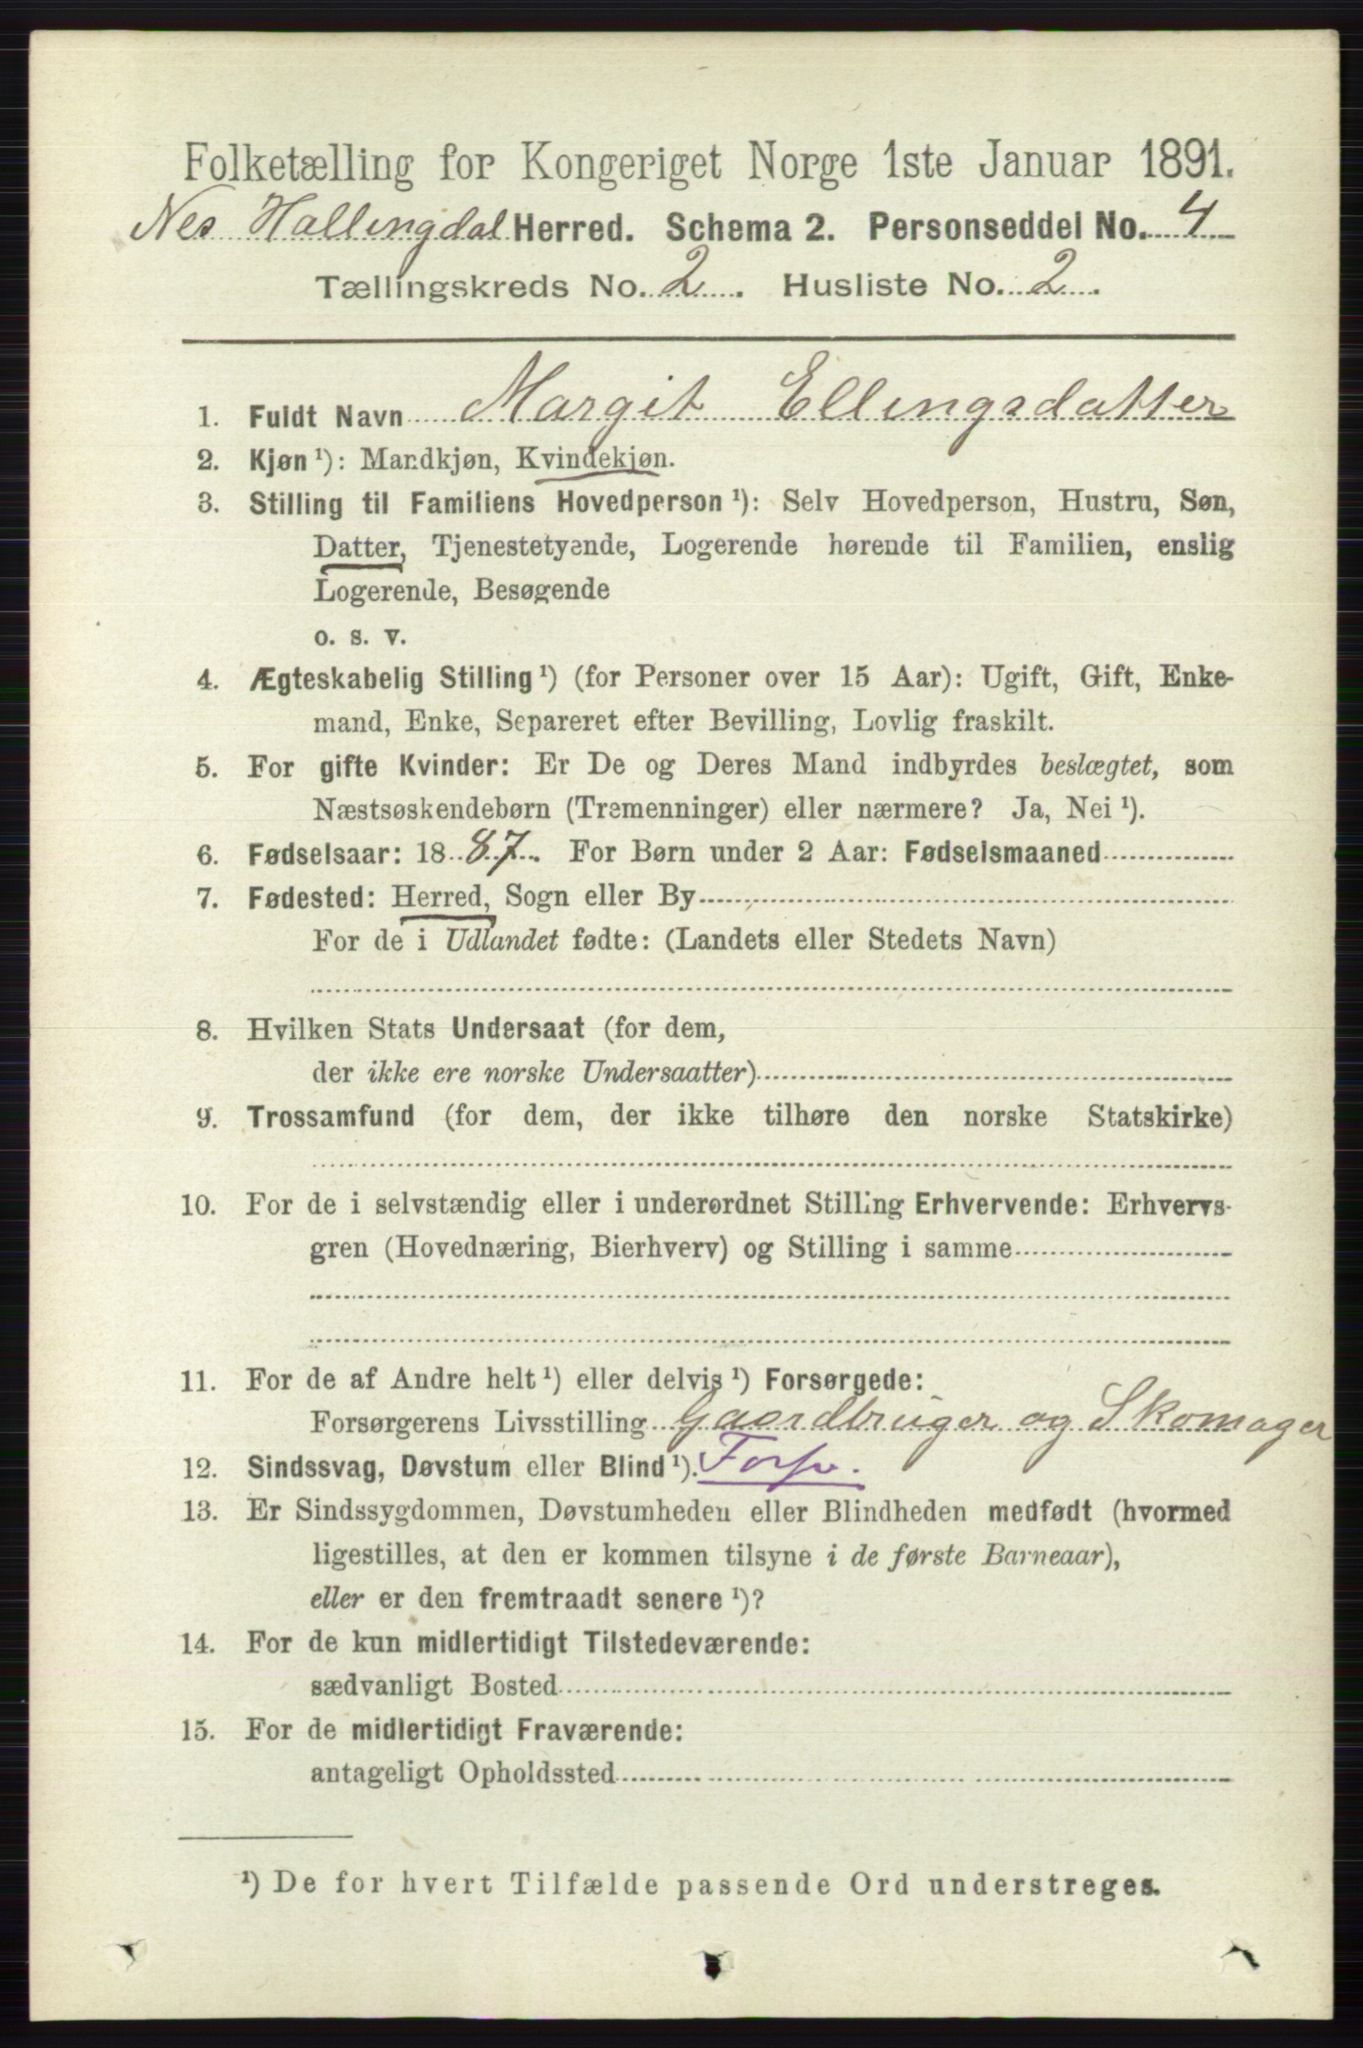 Folketælling for Kongeriget Norge 1ste Januar 1891.
Nes Hallingdal Herred. Schema 2. Personseddel No. 4
Tællingskreds No. 2. Husliste No. 2.
1. Fuldt Navn Margit Ellingsdatter
2. Kjøn ¹): Mandkjøn, Kvindekjøn.
3. Stilling til Familiens Hovedperson ¹): Selv Hovedperson, Hustru, Søn,
Datter, Tjenestetyende, Logerende hørende til Familien, enslig
Logerende, Besøgende
o. s. v.
4. Ægteskabelig Stilling ¹) (for Personer over 15 Aar): Ugift, Gift, Enke-
mand, Enke, Separeret efter Bevilling, Lovlig fraskilt.
5. For gifte Kvinder: Er De og Deres Mand indbyrdes beslægtet, som
Næstsøskendebørn (Tremenninger) eller nærmere? Ja, Nei ¹).
6. Fødselsaar: 1887. For Børn under 2 Aar: Fødselsmaaned
7. Fødested: Herred, Sogn eller By
For de i Udlandet fødte: (Landets eller Stedets Navn)
8. Hvilken Stats Undersaat (for dem,
der ikke ere norske Undersaatter)
9. Trossamfund (for dem, der ikke tilhøre den norske Statskirke)
10. For de i selvstændig eller i underordnet Stilling Erhvervende: Erhvervs-
gren (Hovednæring, Bierhverv) og Stilling i samme
11. For de af Andre helt ¹) eller delvis ¹) Forsørgede:
Forsørgerens Livsstilling Gaardbruger og Skomager
12. Sindssvag, Døvstum eller Blind ¹). Fors.
13. Er Sindssygdommen, Døvstumheden eller Blindheden medfødt (hvormed
ligestilles, at den er kommen tilsyne i de første Barneaar),
eller er den fremtraadt senere ¹)?
14. For de kun midlertidigt Tilstedeværende:
sædvanligt Bosted
15. For de midlertidigt Fraværende:
antageligt Opholdssted
¹) De for hvert Tilfælde passende Ord understreges.